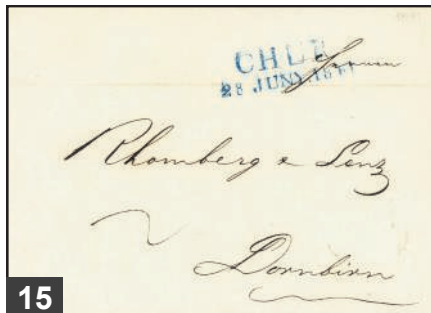 CHUR
28 JUNY
Herren
Rhomberg & Lenz
Dornbirn
15